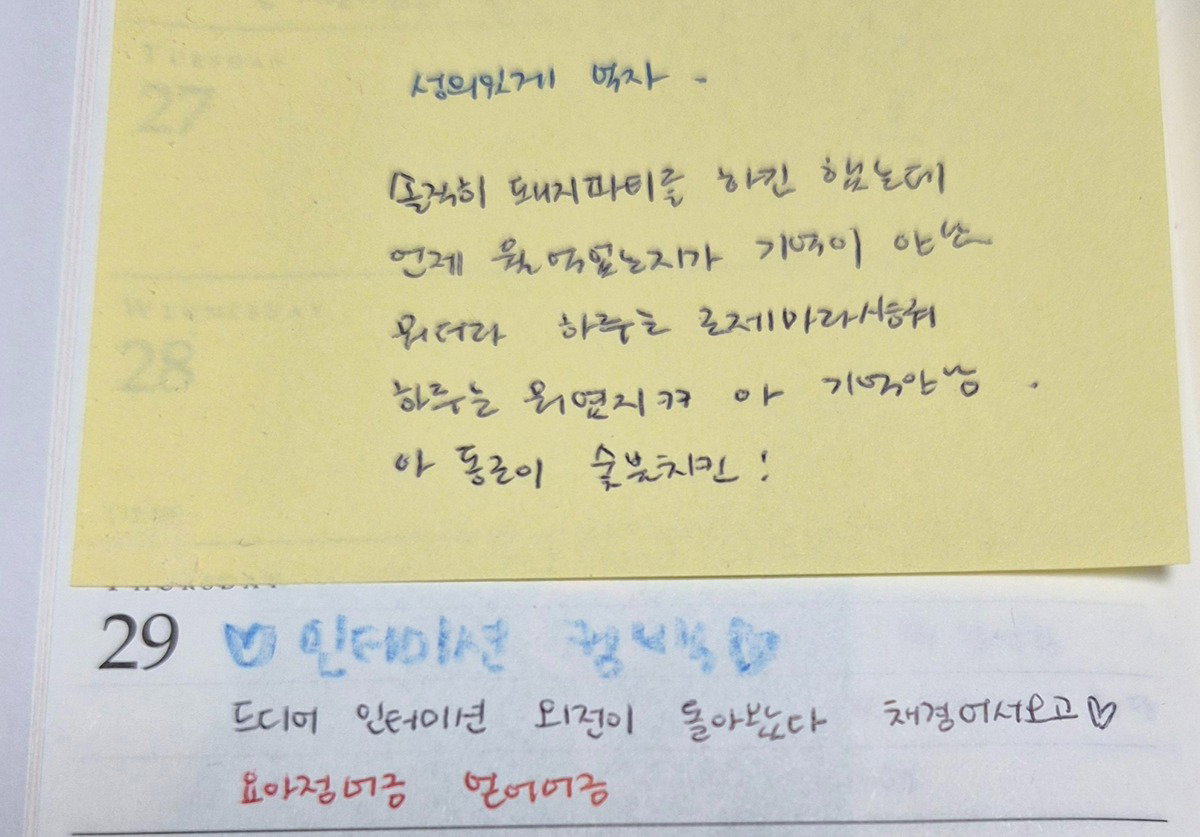 TUESDAY
27
성의있게 먹자 -
솔직히 돼지파티를 하긴 했는데
언제 뭘 먹었는지가 기억이 안난
뭐더라 하루는 로제마라샹궈
하루는 뭐였지ㅋㅋ 아 기억안낭 .
WEDNESDAY
28
아 통글이 숯불치킨!
THURSDAY
29 ♡인터미션 컴백♡
드디어 인터미션 외전이 돌아봤다 채경어서오고♡
요아정머금 얻어머금